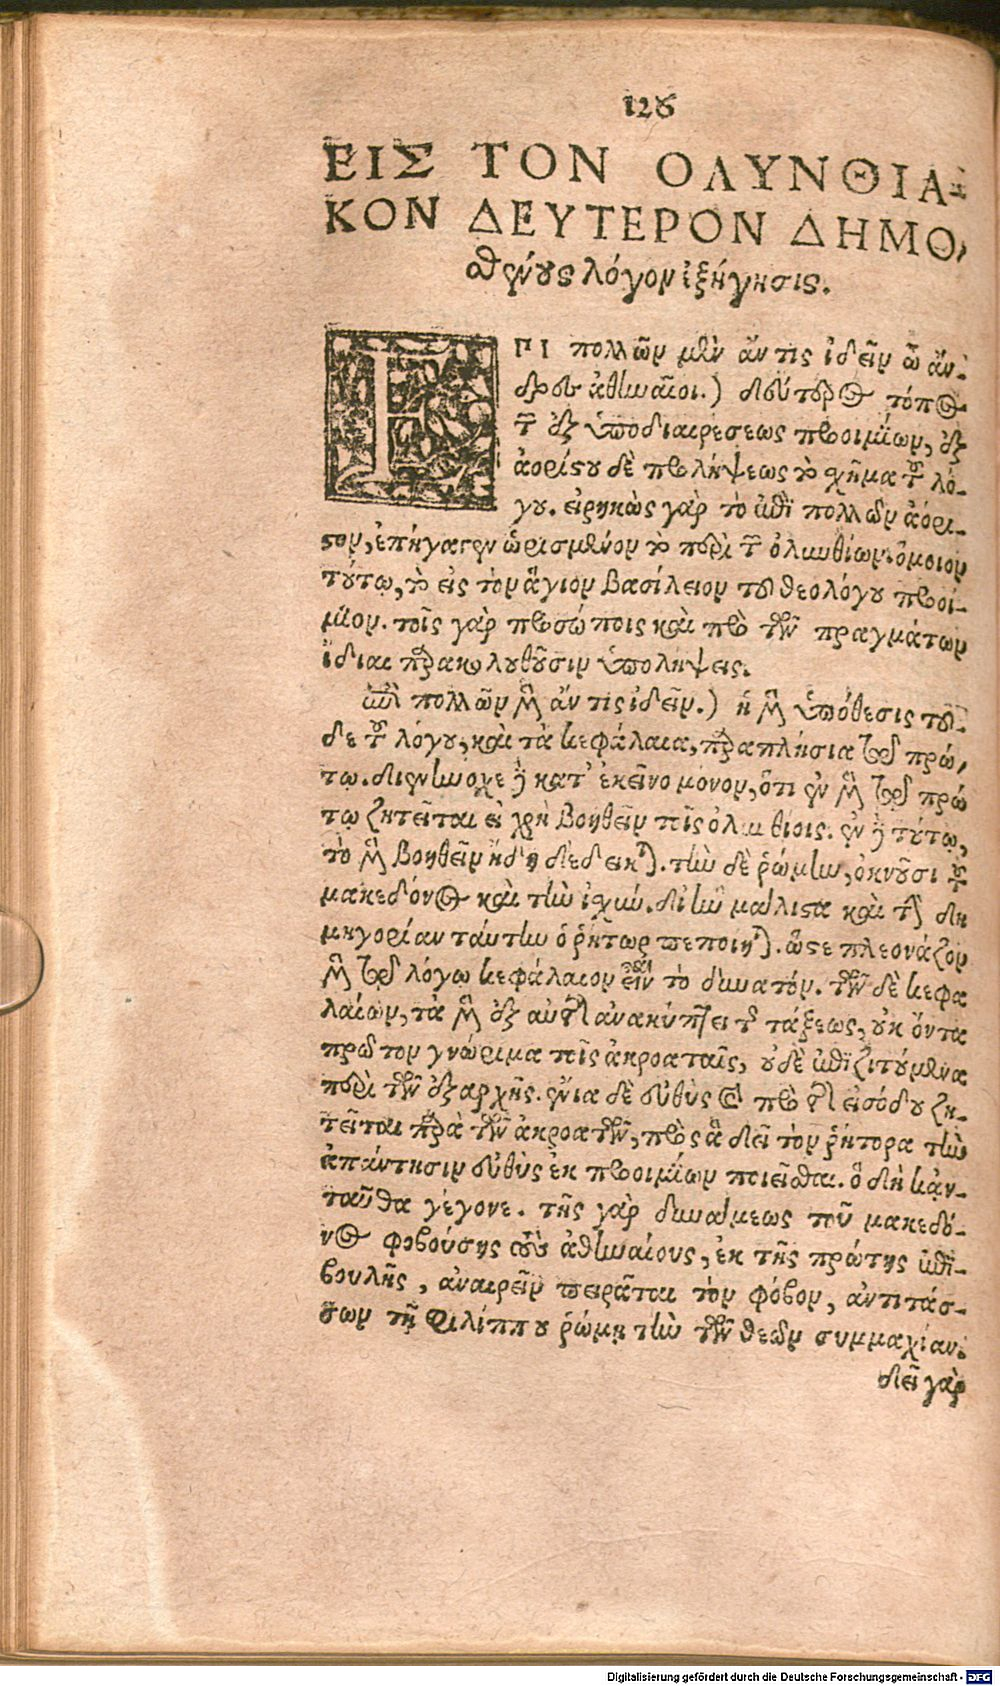 126
ΕΙΣ ΤΟΝ ΟΛΥΝΘΙΑ-
ΚΟΝ ΔΕΥΤΕΡΟΝ ΔΗΜΟ,
σθένους λόγον ἐξήγησις.
ΕΠΙ πολλῶν μὲν ἄν τις ἰδεῖν ὦ ἄν-
δρες ἀθηναῖοι.) δεύτερος τόπος
τοῦ ἐξ ὑποδιαιρέσεως προοιμίων, ἐξ
ἀορίστου δὲ προλήψεως τὸ σχῆμα τοῦ λό-
γου. εἰρηκὼς γὰρ τὸ ἐπὶ πολλῶν ἀόρι-
στον, ἐπήγαγεν ὡρισμένον τὸ περὶ τῶν ὀλυνθίων. ὅμοιον
τούτῳ, τὸ εἰς τὸν ἅγιον βασίλειον τοῦ θεολόγου προοί-
μιον. τοῖς γὰρ προσώποις καὶ πρὸ τῶν πραγμάτων
ἴδιαι παρακολουθοῦσιν ὑπολήψεις.
ἐπὶ πολλῶν μὲν ἄν τις ἰδεῖν.) ἡ μὲν ὑπόθεσις τοῦ-
δε τοῦ λόγου, καὶ τὰ κεφάλαια, παραπλήσια τῷ πρώ,
τῳ. διενήνοχε δὲ κατ' ἐκεῖνο μόνον, ὅτι ἐν μὲν τῷ πρώ
τῳ ζητεῖται εἰ χρὴ βοηθεῖν τοῖς ὀλυνθίοις. ἐν δὲ τούτῳ,
τὸ μὲν βοηθεῖν ἤδη δέδεικται. τὴν δὲ ῥώμην, ὀκνοῦσι τοῦ
μακεδόνος καὶ τὴν ἰσχύν. δι' ἣν μάλιστα καὶ τὴν δη
μηγορίαν ταύτην ὁ ῥήτωρ πεποίηται. ὥστε πλεονάζον
μὲν τῷ λόγῳ κεφάλαιον ἐστὶν τὸ δυνατόν. τῶν δὲ κεφα
λαίων, τὰ μὲν ἐξ αὐτῆς ἀνακύπτει τῆς τάξεως, οὐκ ὄντα
πρῶτον γνώριμα τοῖς ἀκροαταῖς, οὐδὲ ἐπιζητούμενα
παρὰ τῶν ἐξ ἀρχῆς. ἔνια δὲ εὐθὺς καὶ πρὸ τῆς εἰσόδου ζη-
τεῖται παρὰ τῶν ἀκροατῶν, πρὸς ἃ δεῖ τὸν ῥήτορα τὴν
ἀπάντησιν εὐθὺς ἐκ προοιμίων ποιεῖσθαι. ὃ δὴ κἀν-
ταῦθα γέγονε. τῆς γὰρ δυνάμεως τοῦ μακεδό-
νος φοβούσης τοὺς ἀθηναίους, ἐκ τῆς πρώτης ἐπι-
βουλῆς, ἀναιρεῖν πειρᾶται τὸν φόβον, ἀντιτάσ-
σων τῇ Φιλίππου ῥώμῃ τὴν τῶν θεῶν συμμαχίαν.
δεῖ γὰρ
Digitalisierung gefördert durch die Deutsche Forschungsgemeinschaft - DFG